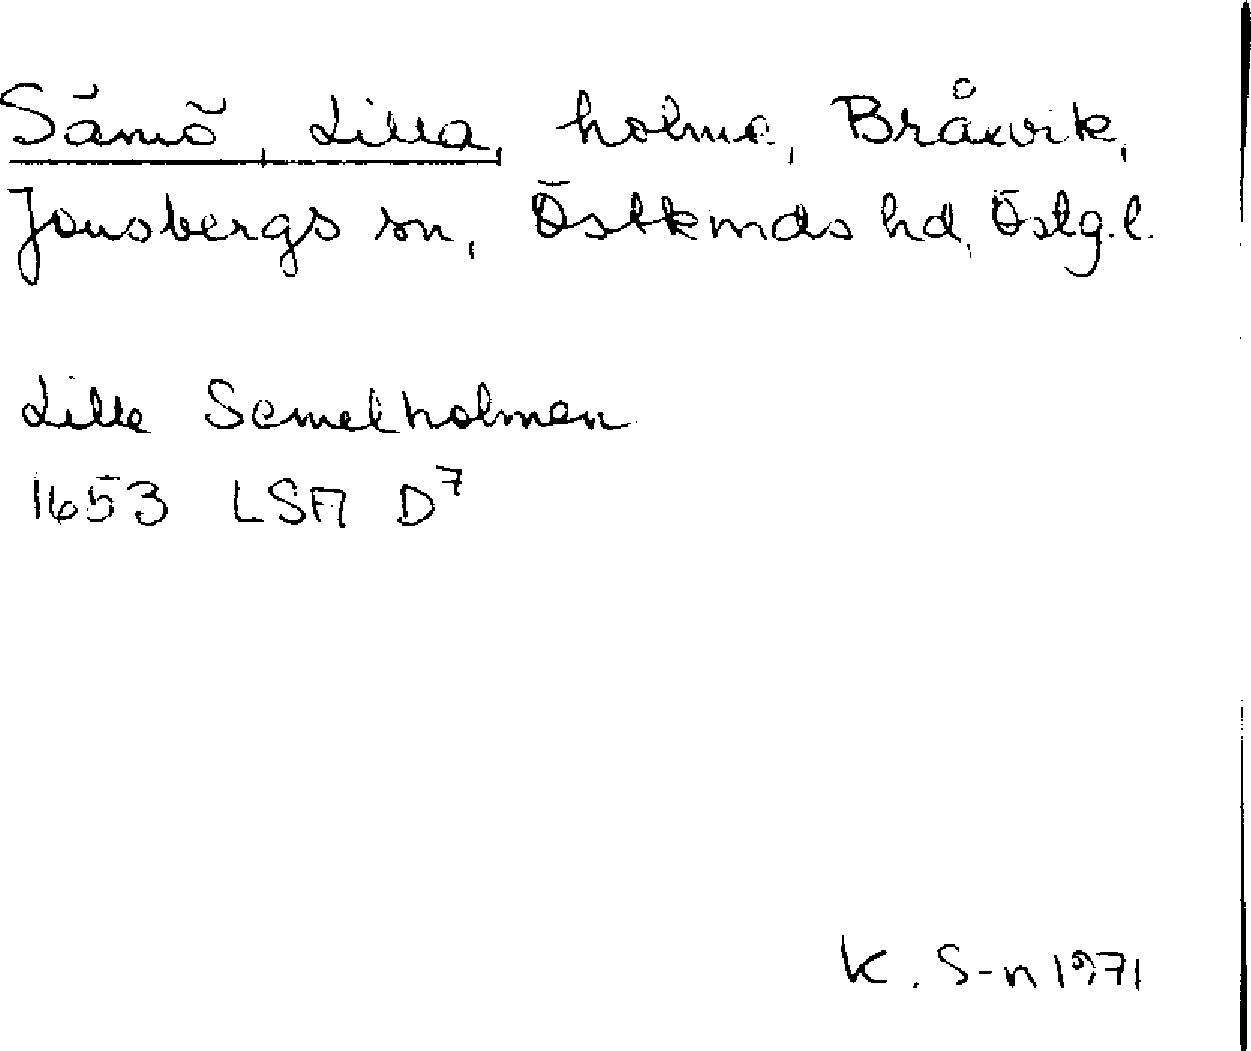 Sämö, Lilla, holme, Bråvik,
Jonsbergs sn, Östkinds hd, Östg.l.
Lille Semelholmen
1653 LSA D⁷
K. S-n 1971